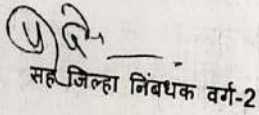 सह जिल्हा निंबधक वर्ग-2